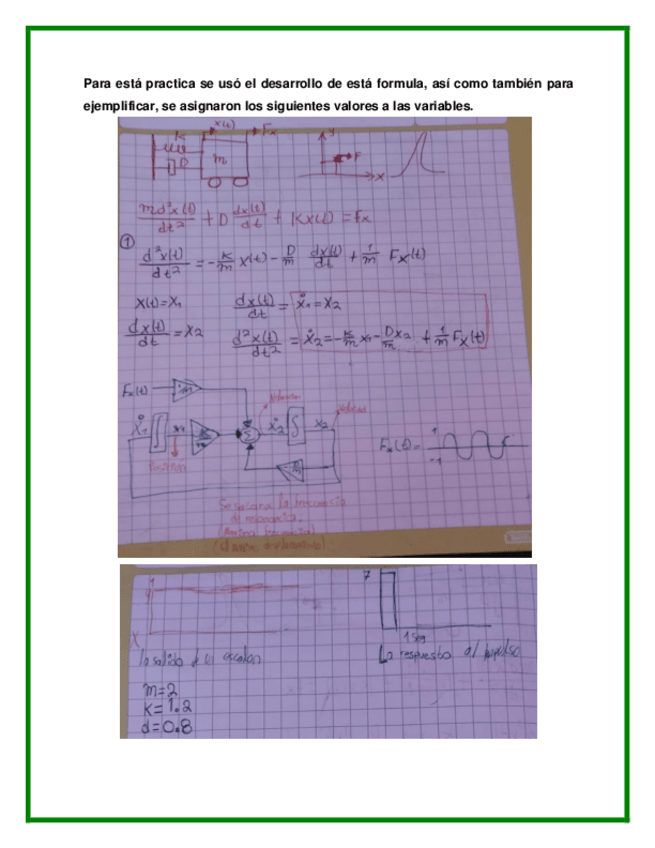 Para está practica se usó el desarrollo de está formula, así como también para
ejemplificar, se asignaron los siguientes valores a las variables.
x(t) Fx
K
D
m
y
F
x
md²x(t)/dt² + D dx(t)/dt + Kx(t) = Fx
①
d²x(t)/dt² = -K/m x(t) - D/m dx(t)/dt + 1/m Fx(t)
x(t) = x₁ dx(t)/dt = ẋ₁ = x₂
dx(t)/dt = x₂ d²x(t)/dt² = ẋ₂ = -K/m x₁ - Dx₂/m + 1/m Fx(t)
Fx(t)
ẋ₁ ∫ x₁ Σ ẋ₂ ∫ x₂
Posición
Fx(t) = 1
-1
la
de resonancia.
7
1 seg
la salida de un escalon
La respuesta al impulso
m=2
k=1.2
d=0.8